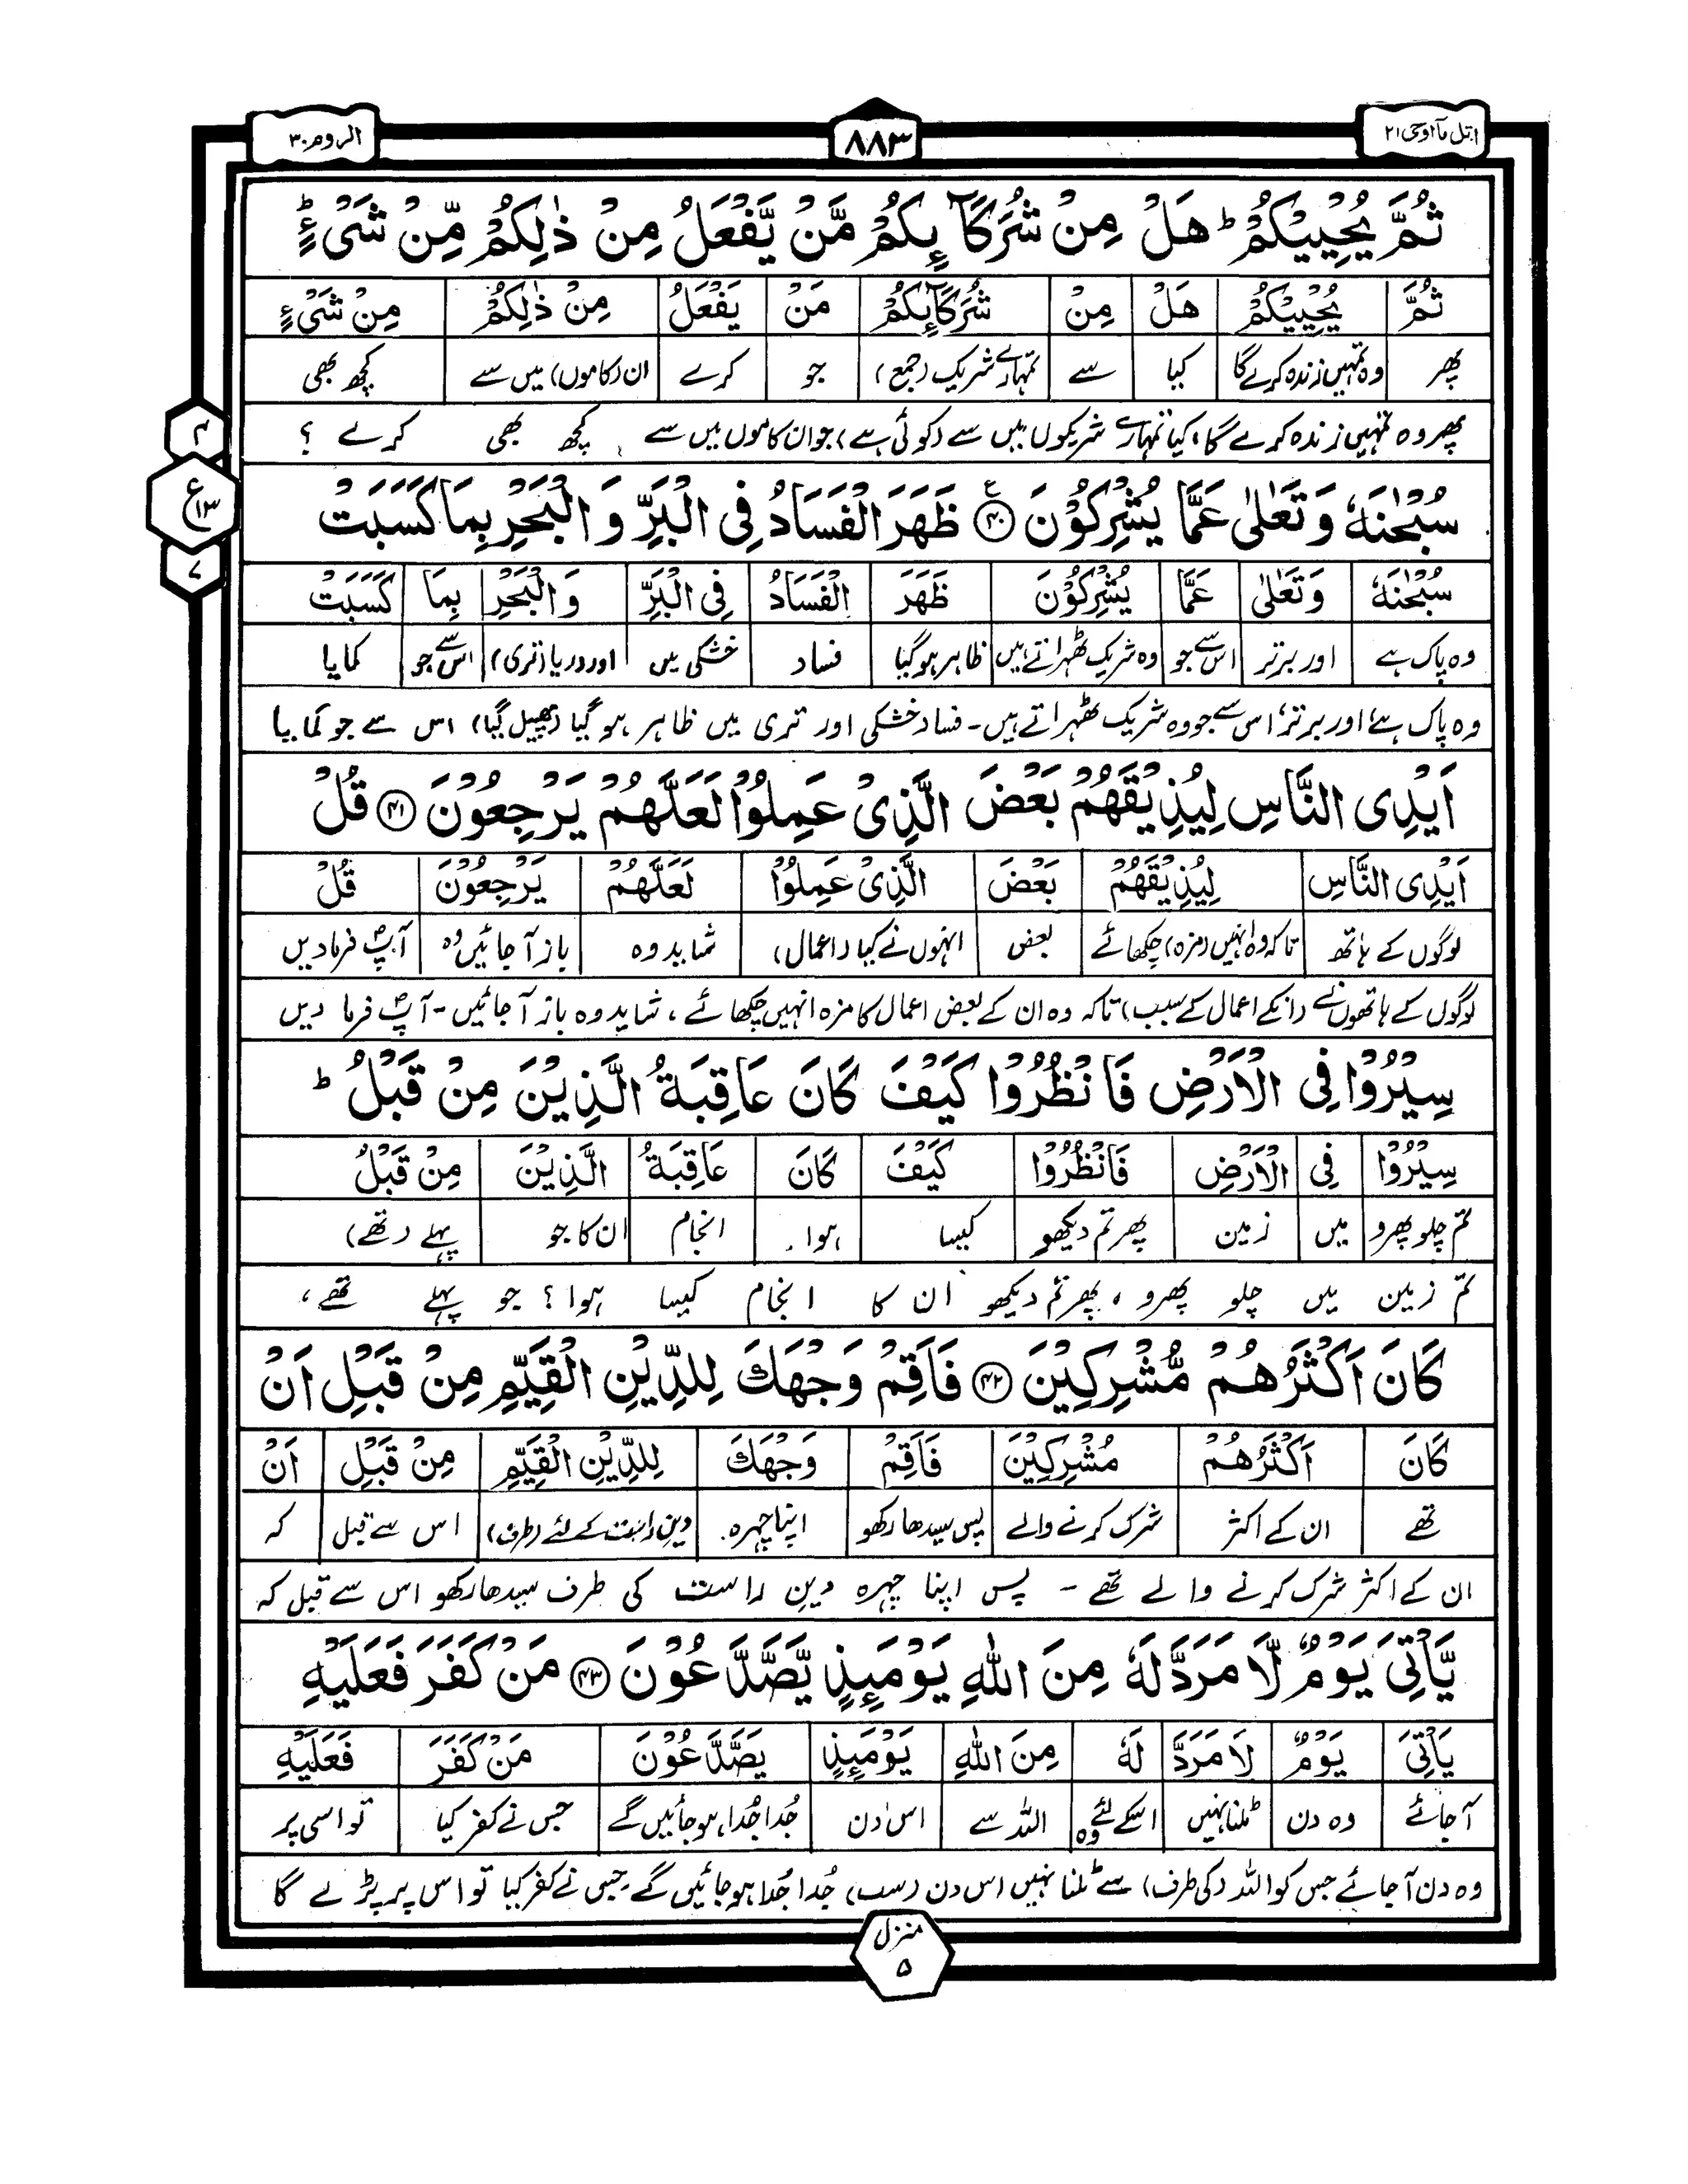 اتل مآ اوحی ۲۱
۸۸۳
الروم ۳۰
ثُمَّ يُحْيِيْكُمْ ؕ هَلْ مِنْ شُرَكَآئِكُمْ مَّنْ يَّفْعَلُ مِنْ ذٰلِكُمْ مِّنْ شَىْءٍ ؕ
ثُمَّ يُحْيِيْكُمْ هَلْ مِنْ شُرَكَآئِكُمْ مَنْ يَفْعَلُ مِنْ ذٰلِكُمْ مِنْ شَىْءٍ
پھر وہ تمہیں زندہ کرے گا کیا سے تمہارے شریک (جمع) جو کرے ان (کاموں) میں سے کچھ بھی
پھر وہ تمہیں زندہ کرے گا، کیا تمہارے شریکوں میں سے (کوئی ہے) جو ان کاموں میں سے کچھ بھی کرے ؟
۴
ع ۱۳
۷
سُبْحٰنَهٗ وَ تَعٰلٰى عَمَّا يُشْرِكُوْنَ ۴۰ ع ظَهَرَ الْفَسَادُ فِى الْبَرِّ وَ الْبَحْرِ بِمَا كَسَبَتْ
سُبْحٰنَهٗ وَتَعٰلٰى عَمَّا يُشْرِكُوْنَ ظَهَرَ الْفَسَادُ فِى الْبَرِّ وَالْبَحْرِ بِمَا كَسَبَتْ
وہ پاک ہے اور برتر اس سے جو وہ شریک ٹھہراتے ہیں ظاہر ہوگیا فساد خشکی میں اور دریا (تری) اس سے جو کمایا
وہ پاک ہے اور برتر، اس سے جو وہ شریک ٹھہراتے ہیں۔ فساد خشکی اور تری میں ظاہر ہو گیا (پھیل گیا) اس سے جو کمایا
اَيْدِى النَّاسِ لِيُذِيْقَهُمْ بَعْضَ الَّذِىْ عَمِلُوْا لَعَلَّهُمْ يَرْجِعُوْنَ ۴۱ قُلْ
اَيْدِى النَّاسِ لِيُذِيْقَهُمْ بَعْضَ الَّذِىْ عَمِلُوْا لَعَلَّهُمْ يَرْجِعُوْنَ قُلْ
لوگوں کے ہاتھ تاکہ وہ انہیں (مزہ) چکھائے بعض انہوں نے کیا (اعمال) شاید وہ باز آجائیں وہ آپؐ فرمادیں
لوگوں کے ہاتھوں نے (انکے اعمال کے سبب) تاکہ وہ ان کے بعض اعمال کا مزہ انہیں چکھائے، شاید وہ باز آ جائیں۔ آپؐ فرما دیں
سِيْرُوْا فِى الْاَرْضِ فَانْظُرُوْا كَيْفَ كَانَ عَاقِبَةُ الَّذِيْنَ مِنْ قَبْلُ ؕ
سِيْرُوْا فِى الْاَرْضِ فَانْظُرُوْا كَيْفَ كَانَ عَاقِبَةُ الَّذِيْنَ مِنْ قَبْلُ
تم چلو پھرو میں زمین پھر تم دیکھو کیسا ہوا انجام ان کا جو پہلے (تھے)
تم زمین میں چلو پھرو، پھر تم دیکھو ان کا انجام کیسا ہوا؟ جو پہلے تھے،
كَانَ اَكْثَرُهُمْ مُّشْرِكِيْنَ ۴۲ فَاَقِمْ وَجْهَكَ لِلدِّيْنِ الْقَيِّمِ مِنْ قَبْلِ اَنْ
كَانَ اَكْثَرُهُمْ مُشْرِكِيْنَ فَاَقِمْ وَجْهَكَ لِلدِّيْنِ الْقَيِّمِ مِنْ قَبْلِ اَنْ
تھے ان کے اکثر شرک کرنے والے پس سیدھا رکھو اپنا چہرہ دینِ راست کے لئے (طرف) اس سے قبل کہ
ان کے اکثر شرک کرنے والے تھے۔ پس اپنا چہرہ دینِ راست کی طرف سیدھا رکھو اس سے قبل کہ
يَّاْتِىَ يَوْمٌ لَّا مَرَدَّ لَهٗ مِنَ اللّٰهِ يَوْمَئِذٍ يَّصَّدَّعُوْنَ ۴۳ مَنْ كَفَرَ فَعَلَيْهِ
يَاْتِىَ يَوْمٌ لَا مَرَدَّ لَهٗ مِنَ اللّٰهِ يَوْمَئِذٍ يَصَّدَّعُوْنَ مَنْ كَفَرَ فَعَلَيْهِ
آجائے وہ دن ٹلنا نہیں اسکے لئے وہ اللہ سے اس دن جُدا جُدا ہوجائیں گے جس نے کفر کیا تو اسی پر
وہ دن آجائے جس کو اللہ (کی طرف) سے ٹلنا نہیں اس دن (سب) جُدا جُدا ہوجائیں گے، جس نے کفر کیا تو اس پر پڑے گا
منزل
۵